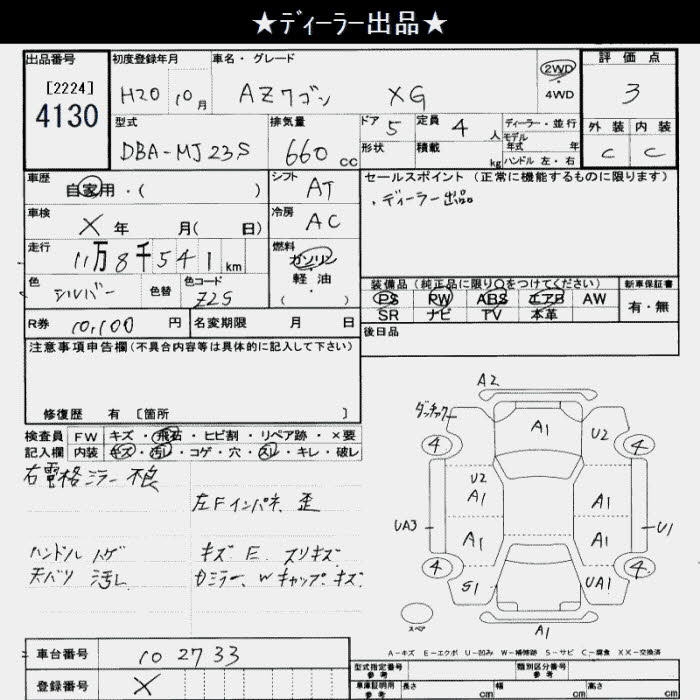 ★ディーラー出品★
出品番号 初度登録年月 車名・グレード 2WD 評価点
[2224] H20 10月 AZワゴン XG 4WD 3
4130
型式 排気量 ドア 定員 ディーラー・並行 外装 内装
DBA-MJ23S 660cc 5 4人 モデル年式 年 C C
形状 積載 kg ハンドル 左・右
車歴 自家用・( ) シフト AT セールスポイント (正常に機能するものに限ります)
・ディーラー出品
車検 X 年 月( 日) 冷房 AC
走行 11万8千541km 燃料 ガソリン
軽・油
( )
色 シルバー 色替 色コード Z2S
装備品 (純正品に限り○をつけてください) 新車保証書
PS PW ABS エアB AW 有・無
SR ナビ TV 本革
R券 10,100 円 名変期限 月 日 後日品
注意事項申告欄(不具合内容等は具体的に記入して下さい)
修復歴 有 [箇所 ]
検査員 FW キズ・飛石・ヒビ割・リペア跡・×要
記入欄 内装 キズ・汚レ・コゲ・穴・スレ・キレ・破レ
右電格ミラー 不良
左Fインパネ 歪
ハンドル ハゲ キズ E. スリキズ
天バリ 汚レ Dミラー、Wキャップ キズ
A2
ダッチャク
A1 U2
4 4
U2
A1 A1
UA3 U1
A1 A1
4 4
S1 UA1
スペア A1
A-キズ E-エクボ U-凹み W-補修跡 S-サビ C-腐食 XX-交換済
車台番号 102733
登録番号 X
型式指定番号 参考 類別区分番号 参考
車庫証明用 参考 長さ cm 幅 cm 高さ cm